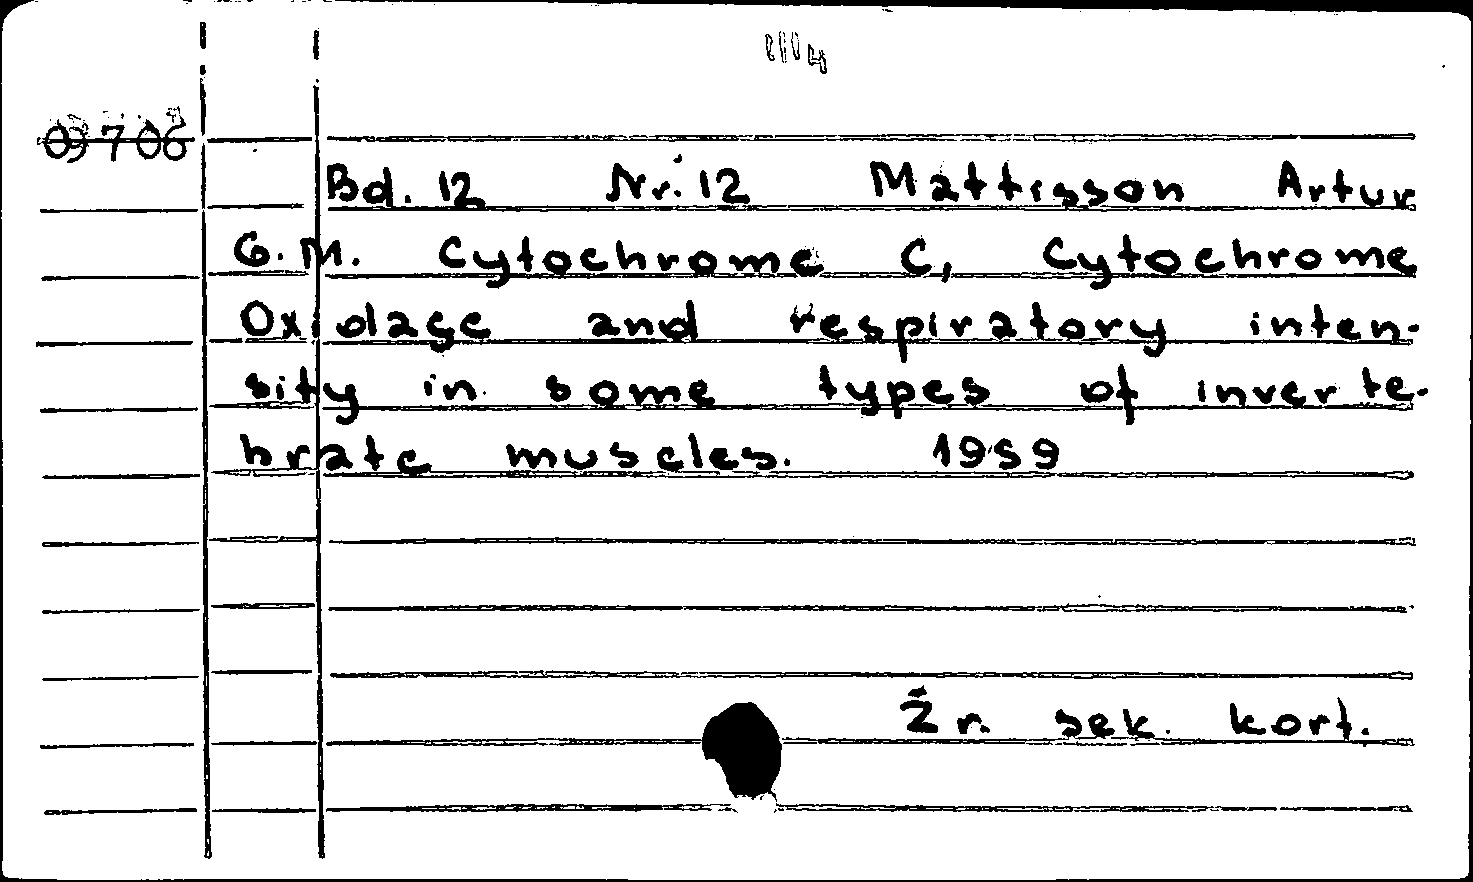 1114
09706
Bd. 12 Nr. 12 Mattisson Artur
G.M. Cytochrome C, Cytochrome
Oxidase and respiratory inten-
sity in some types of inverte-
brate muscles. 1959
Žr. sek. kort.